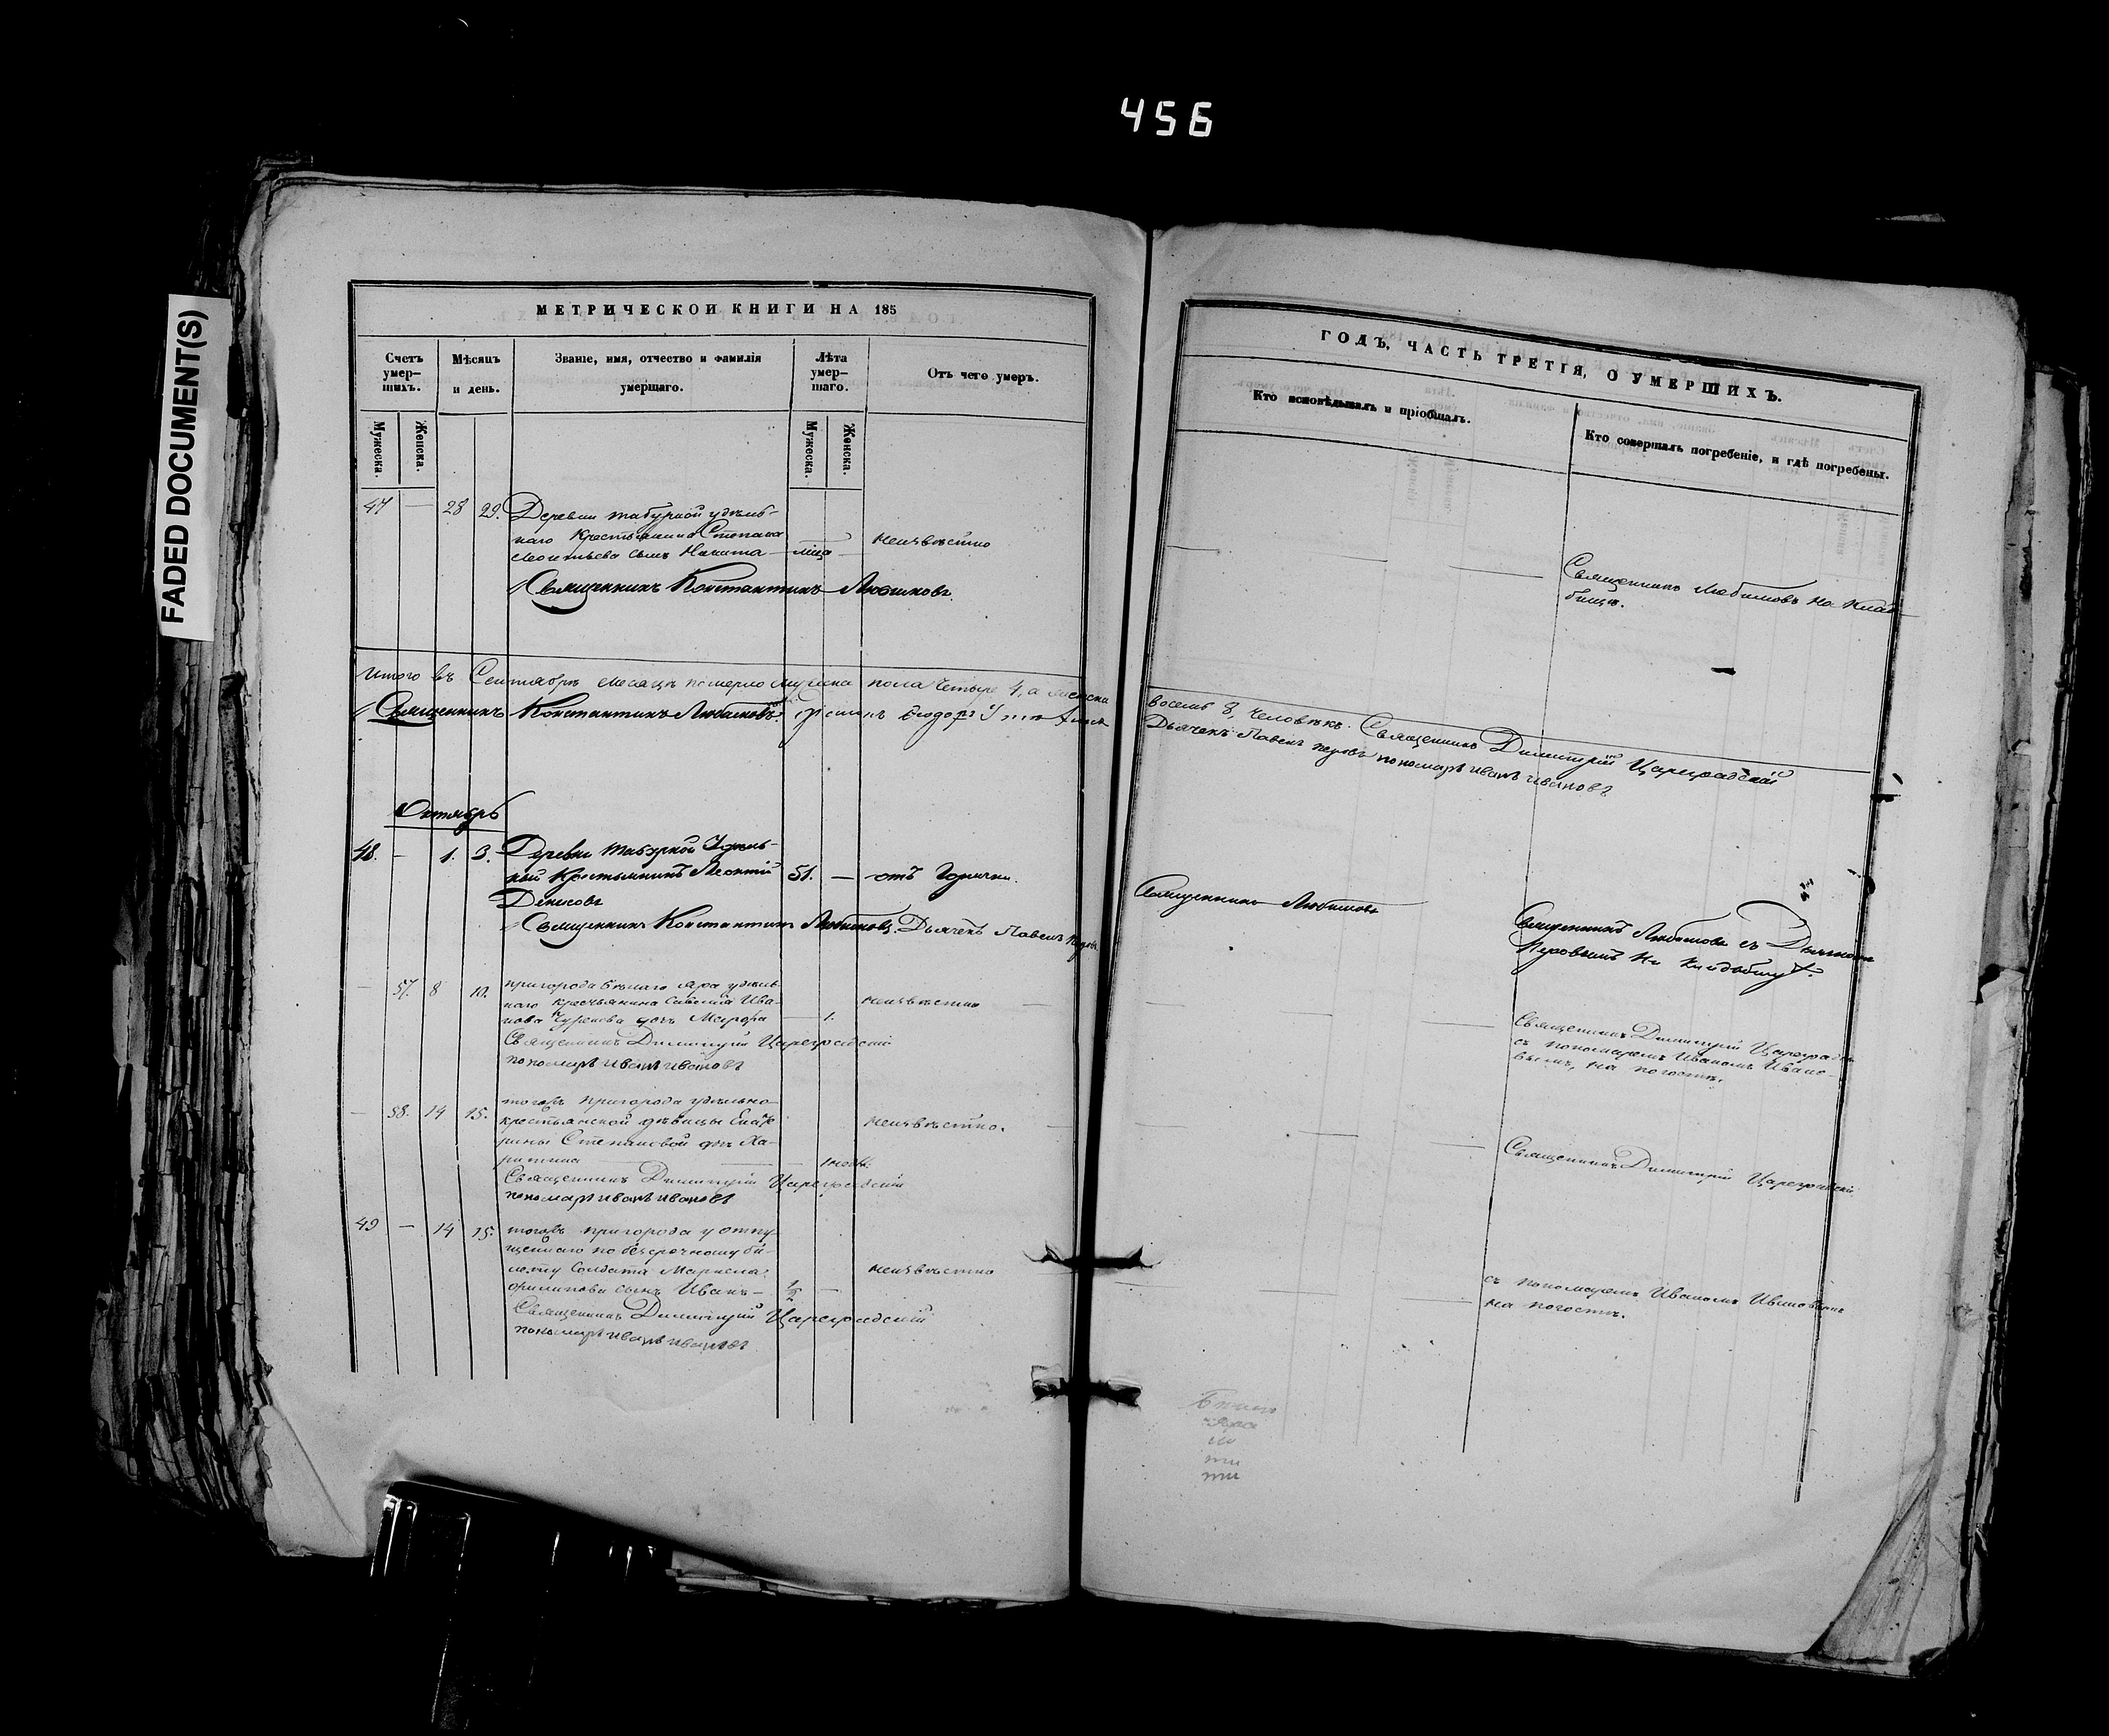 456
FADED DOCUMENT(S)
МЕТРИЧЕСКОЙ КНИГИ НА 185
Счетъ умер-
шихъ.
Мѣсяцъ
и день.
Званіе, имя, отчество и фамилія
умершаго.
Лѣта
умер-
шаго.
Отъ чего умеръ.
Мужеска.
Женска.
Мужеска.
Женска.
47 — 28 29. Деревни удѣль-
наго Крестьянина Степана
Леонтьева сынъ Никита — неизвѣстно
Священникъ Константинъ Любимовъ.
Итого въ Сентябрѣ месяцѣ померло мужеска пола четыре 4, а женска
Священникъ Константинъ Любимовъ.
Октябрь
48. — 1. 3. Деревни Удѣль-
ный Крестьянинъ Леонтій 51. — отъ Горячки.
Денисовъ
Священникъ Константинъ Любимовъ. Дьячекъ Павелъ
— 57. 8 10. пригорода Бѣлаго Яра удѣль-
наго крестьянина Ива-
нова дочь 1. неизвѣстно
Священникъ Димитрій Цареградскій
пономарь Иванъ Ивановъ
— 58. 14 15. тогожъ пригорода удѣльно-
крестьянской дѣвицы Екате- неизвѣстно.
рины Степановой дочь Ха-
ритина
Священникъ Димитрій Цареградскій
пономарь Иванъ Ивановъ
49 — 14 15. тогожъ пригорода у отпу-
щеннаго по безсрочному би-
лету Солдата неизвѣстно
Филипова сынъ Иванъ —
Священникъ Димитрій Цареградскій
пономарь Иванъ Ивановъ
ГОДЪ, ЧАСТЬ ТРЕТІЯ, О УМЕРШИХЪ.
Кто исповѣдывалъ и пріобщалъ.
Кто совершалъ погребеніе, и гдѣ погребены.
Священникъ Любимовъ на Клад-
бищѣ.
восемь 8, человѣкъ. Священникъ Димитрій Цареградскій
Дьячекъ Павелъ пономарь Иванъ Ивановъ
Священникъ Любимовъ
Священникъ Любимовъ съ Дьячкомъ
на кладбищѣ.
Священникъ Димитрій
съ пономаремъ Иваномъ Ивано-
вымъ, на погостѣ.
Священникъ Димитрій Цареградскій
съ пономаремъ Иваномъ Ивановымъ
на погостѣ.